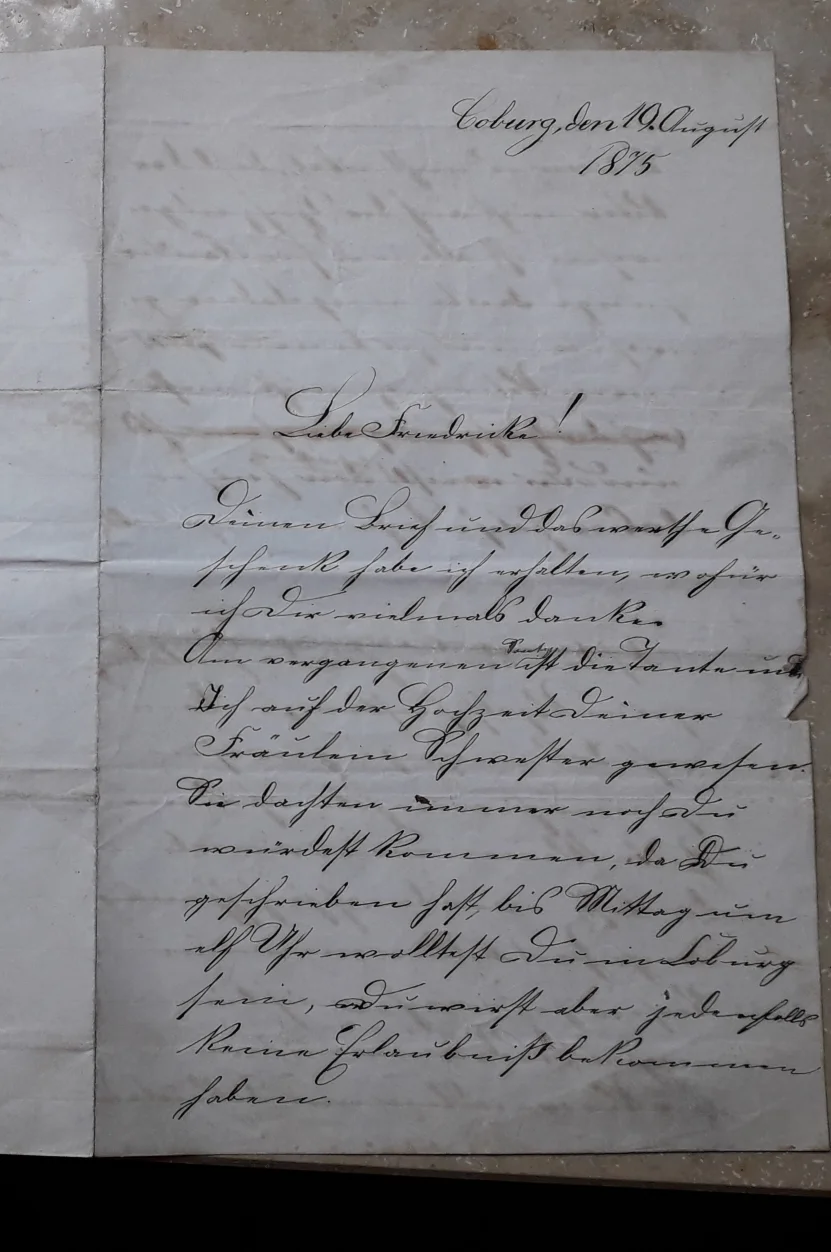 Coburg, den 19. August
1875
Liebe Friedricke!
Deinen Brief und das werthe Ge-
schenk habe ich erhalten, wofür
ich Dir vielmals danke.
Am vergangenen ist die Tante und
Ich auf der Hochzeit Deiner
Fräulein Schwester gewesen.
Sie dachten immer noch Du
würdest kommen, da Du
geschrieben hast, bis Mittag um
elf Uhr wolltest Du in Coburg
sein, Du wirst aber jedenfalls
keine Erlaubniß bekommen
haben.